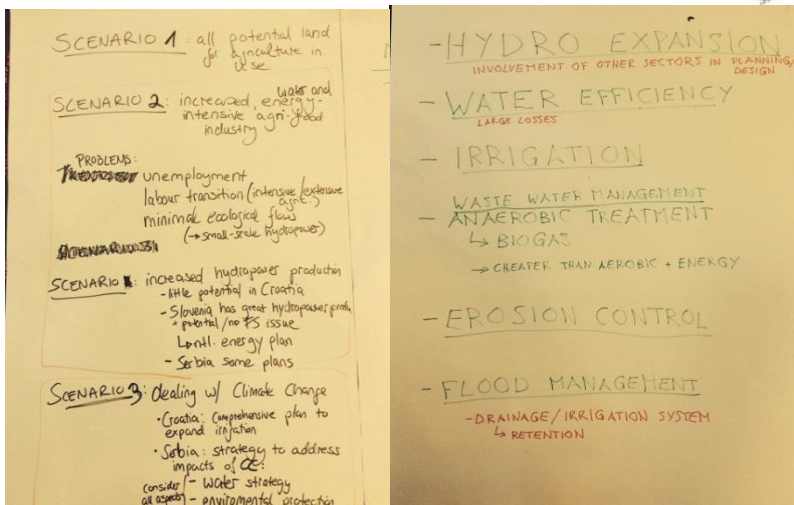 SCENARIO 1: all potential land
for agriculture in
use
SCENARIO 2: increased, water and energy-
intensive agri-food
industry
PROBLEMS:
unemployment
labour transition (intensive/extensive
agric.)
minimal ecological flows
(→small-scale hydropower)
SCENARIO : increased hydropower production
- little potential in Croatia
- Slovenia has great hydropower
+ potential/no issue
↳ ntl. energy plan
- Serbia some plans
SCENARIO 3: dealing w/ Climate Change
• Croatia: comprehensive plan to
expand irrigation
• Serbia: strategy to address
impacts of CC:
(consider - water strategy
all aspects) - enviromental protection
- HYDRO EXPANSION
INVOLVEMENT OF OTHER SECTORS IN PLANNING/
DESIGN
- WATER EFFICIENCY
LARGE LOSSES
- IRRIGATION
WASTE WATER MANAGEMENT
- ANAEROBIC TREATMENT
↳ BIOGAS
→ CHEAPER THAN AEROBIC + ENERGY
- EROSION CONTROL
- FLOOD MANAGEMENT
- DRAINAGE/IRRIGATION SYSTEM
↳ RETENTION